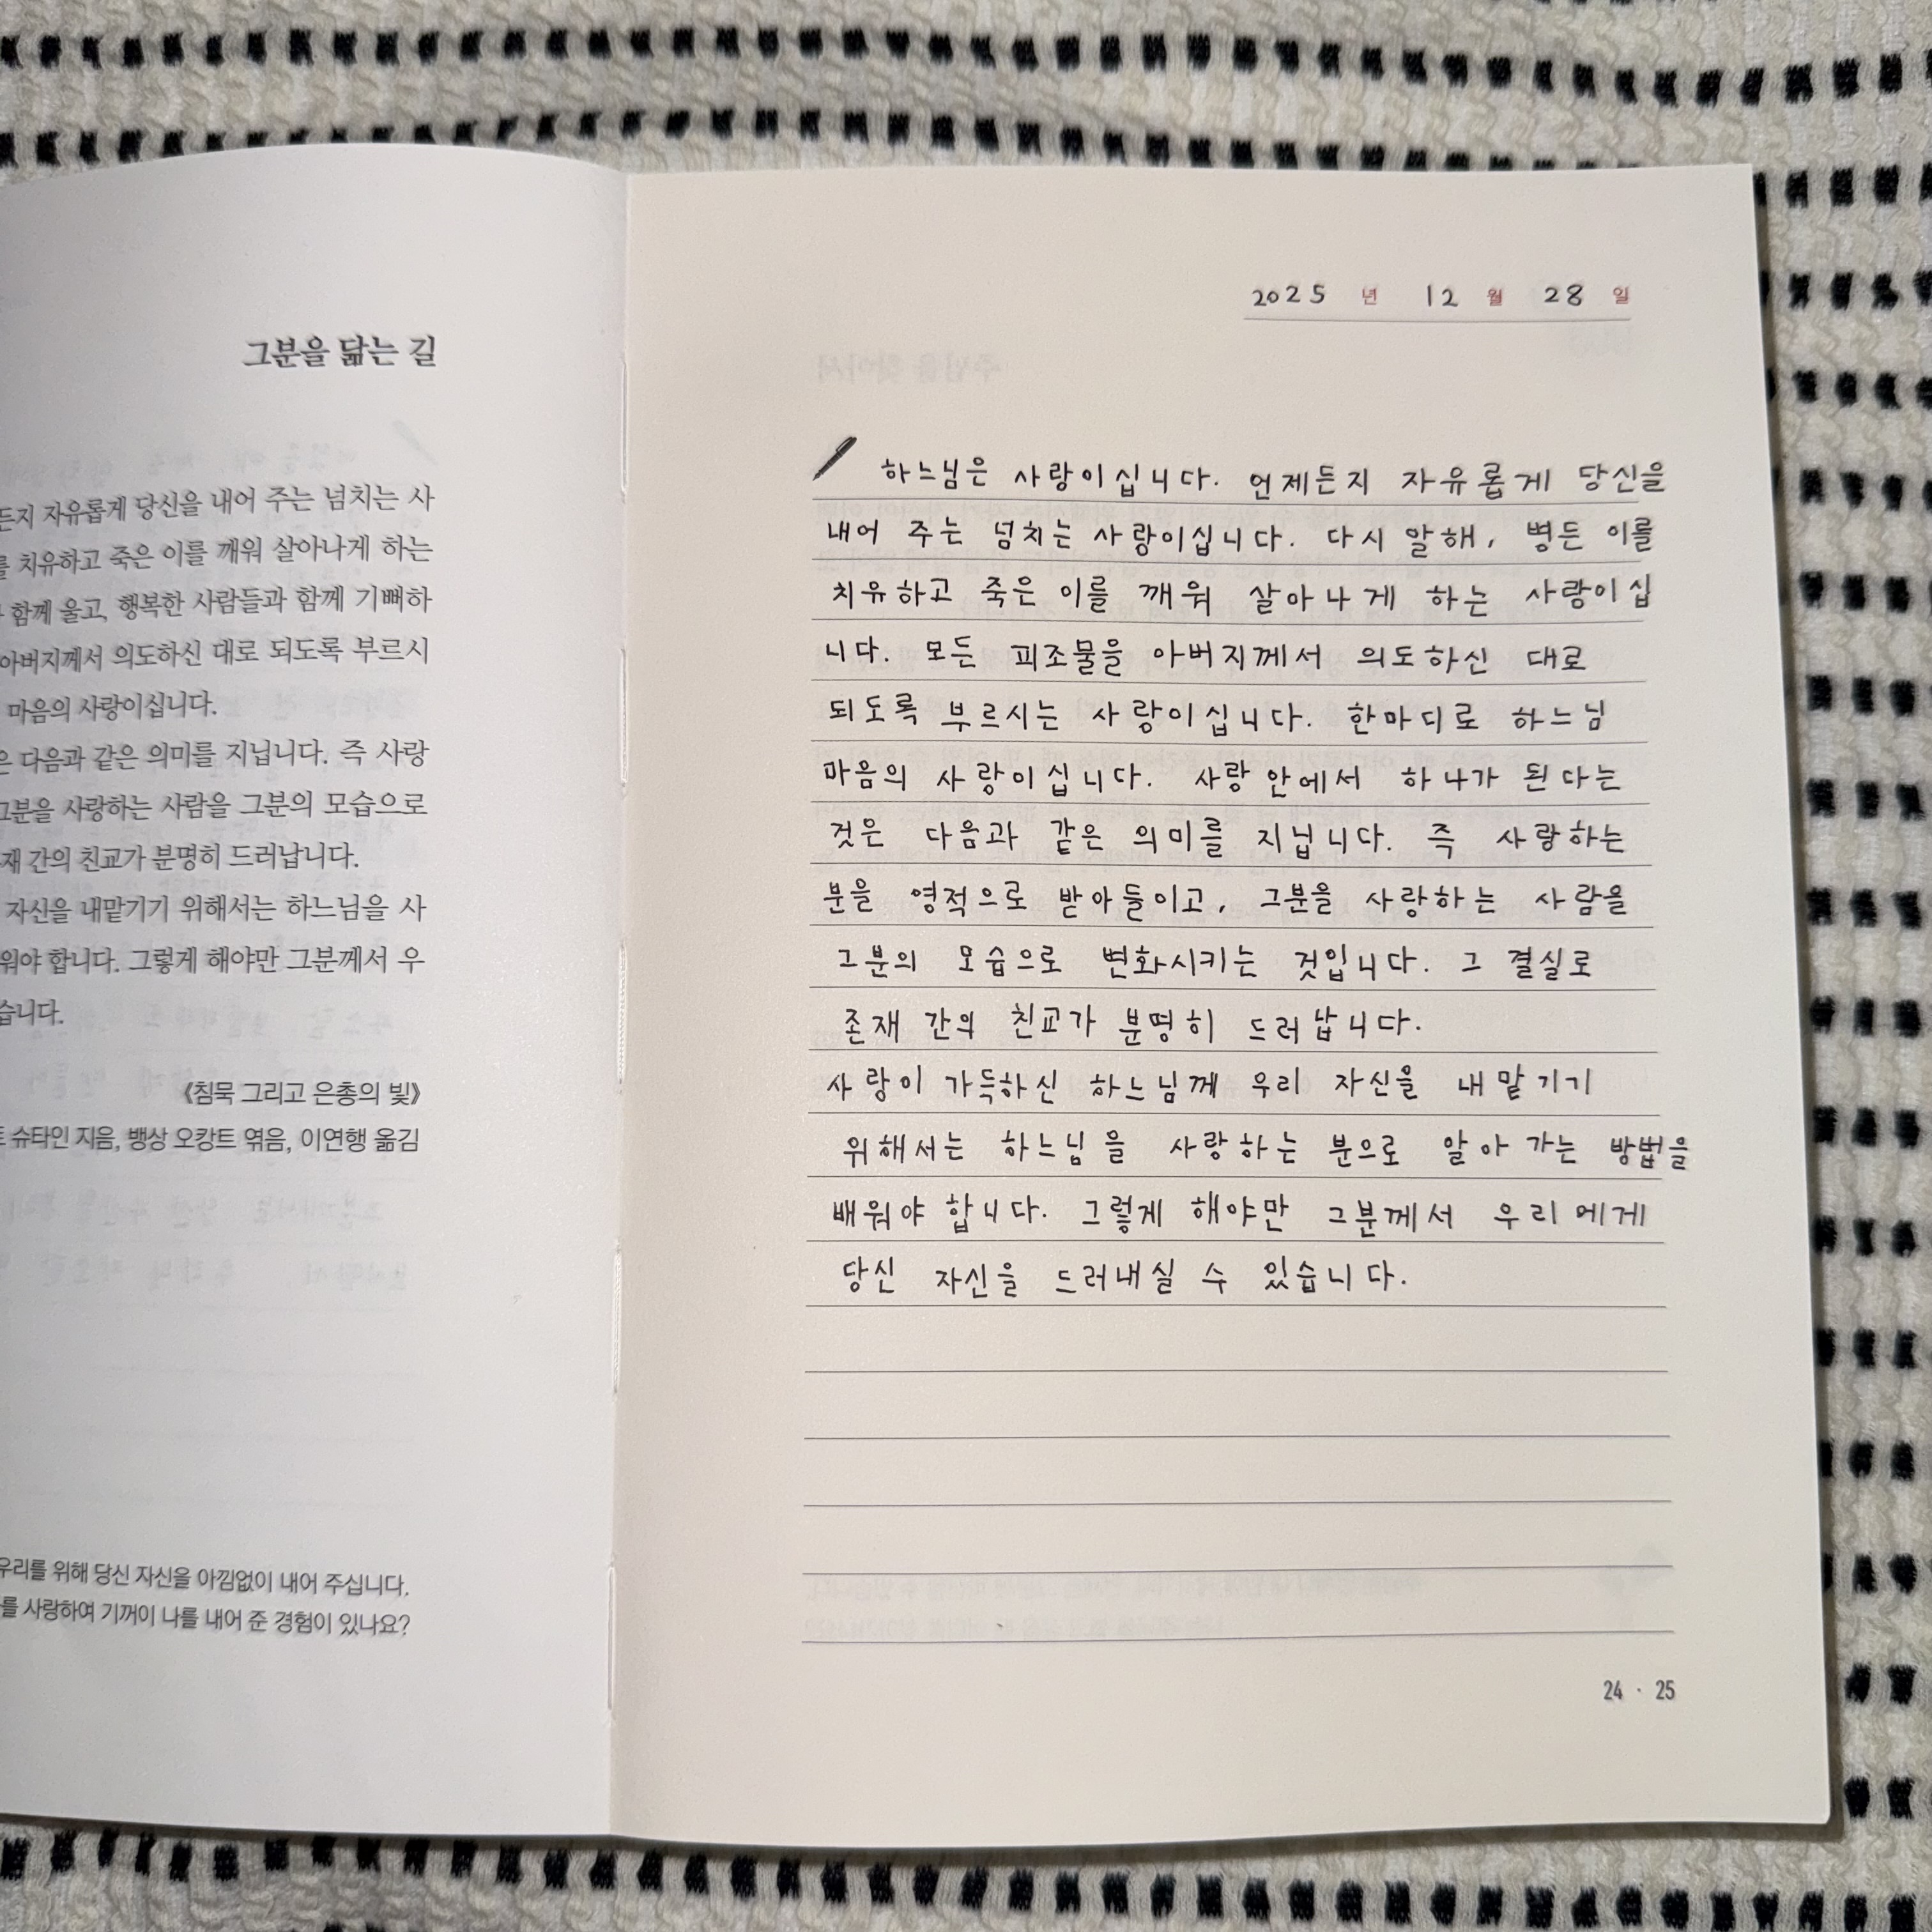 그분을 닮는 길
든지 자유롭게 당신을 내어 주는 넘치는 사
를 치유하고 죽은 이를 깨워 살아나게 하는
함께 울고, 행복한 사람들과 함께 기뻐하
아버지께서 의도하신 대로 되도록 부르시
마음의 사랑이십니다.
은 다음과 같은 의미를 지닙니다. 즉 사랑
그분을 사랑하는 사람을 그분의 모습으로
재 간의 친교가 분명히 드러납니다.
자신을 내맡기기 위해서는 하느님을 사
워야 합니다. 그렇게 해야만 그분께서 우
습니다.
《침묵 그리고 은총의 빛》
트 슈타인 지음, 뱅상 오캉트 엮음, 이연행 옮김
우리를 위해 당신 자신을 아낌없이 내어 주십니다.
를 사랑하여 기꺼이 나를 내어 준 경험이 있나요?
2025 년 12 월 28 일
하느님은 사랑이십니다. 언제든지 자유롭게 당신을
내어 주는 넘치는 사랑이십니다. 다시 말해, 병든 이를
치유하고 죽은 이를 깨워 살아나게 하는 사랑이십
니다. 모든 피조물을 아버지께서 의도하신 대로
되도록 부르시는 사랑이십니다. 한마디로 하느님
마음의 사랑이십니다. 사랑 안에서 하나가 된다는
것은 다음과 같은 의미를 지닙니다. 즉 사랑하는
분을 영적으로 받아들이고, 그분을 사랑하는 사람을
그분의 모습으로 변화시키는 것입니다. 그 결실로
존재 간의 친교가 분명히 드러납니다.
사랑이 가득하신 하느님께 우리 자신을 내맡기기
위해서는 하느님을 사랑하는 분으로 알아 가는 방법을
배워야 합니다. 그렇게 해야만 그분께서 우리에게
당신 자신을 드러내실 수 있습니다.
24 · 25